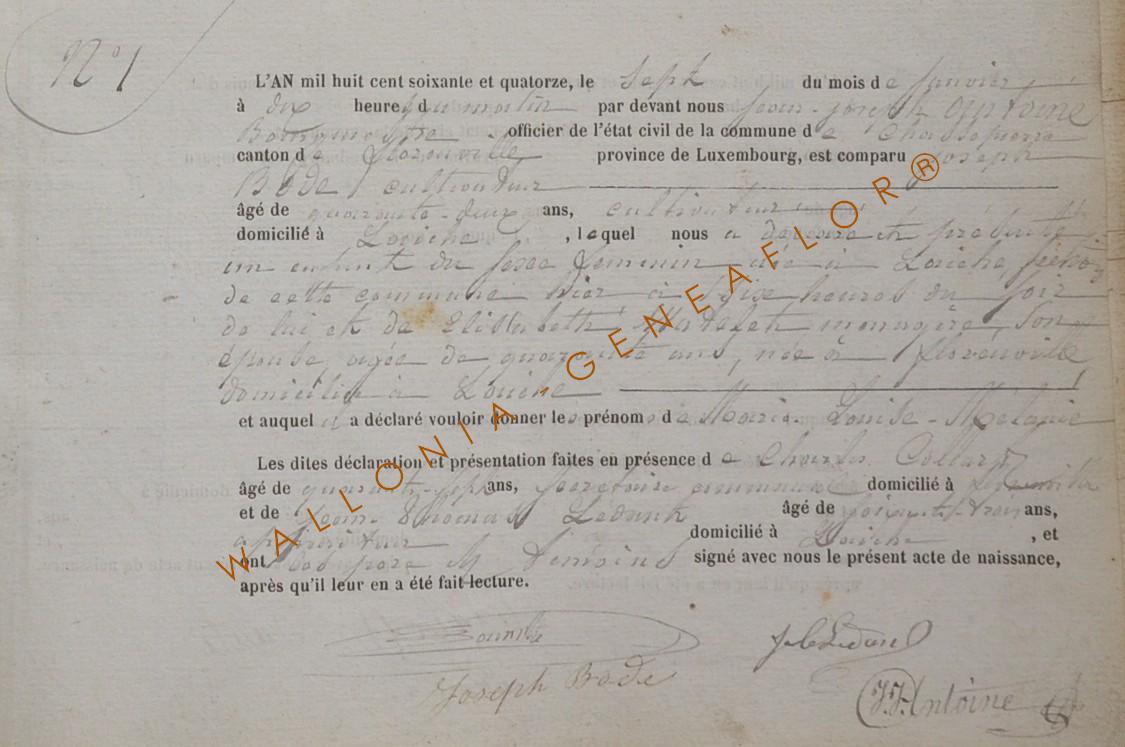 N° 1
L'AN mil huit cent soixante et quatorze, le sept du mois de Janvier
à dix heures du matin par devant nous Jean-Joseph Antoine
Bourgmestre officier de l'état civil de la commune de
canton de Florenville province de Luxembourg, est comparu Joseph
Bodé, cultivateur
âgé de quarante-deux ans, cultivateur
domicilié à , lequel nous a déclaré et présenté
un enfant du sexe féminin, née à
de cette commune hier à heures du soir
de lui et de Elisabeth ménagère, son
épouse, agée de quarante ans, née à Florenville
domiciliée à
et auquel il a déclaré vouloir donner les prénom de Marie-Louise-Mélanie
Les dites déclaration et présentation faites en présence de Charles Collard
âgé de quarante-sept ans, secrétaire communal domicilié à
et de Jean Ledank âgé de soixante-trois ans,
domicilié à , et
ont les père et témoins signé avec nous le présent acte de naissance,
après qu'il leur en a été fait lecture.
Joseph Bodé
J.J. Antoine
WALLONIA - GENEAFLOR®